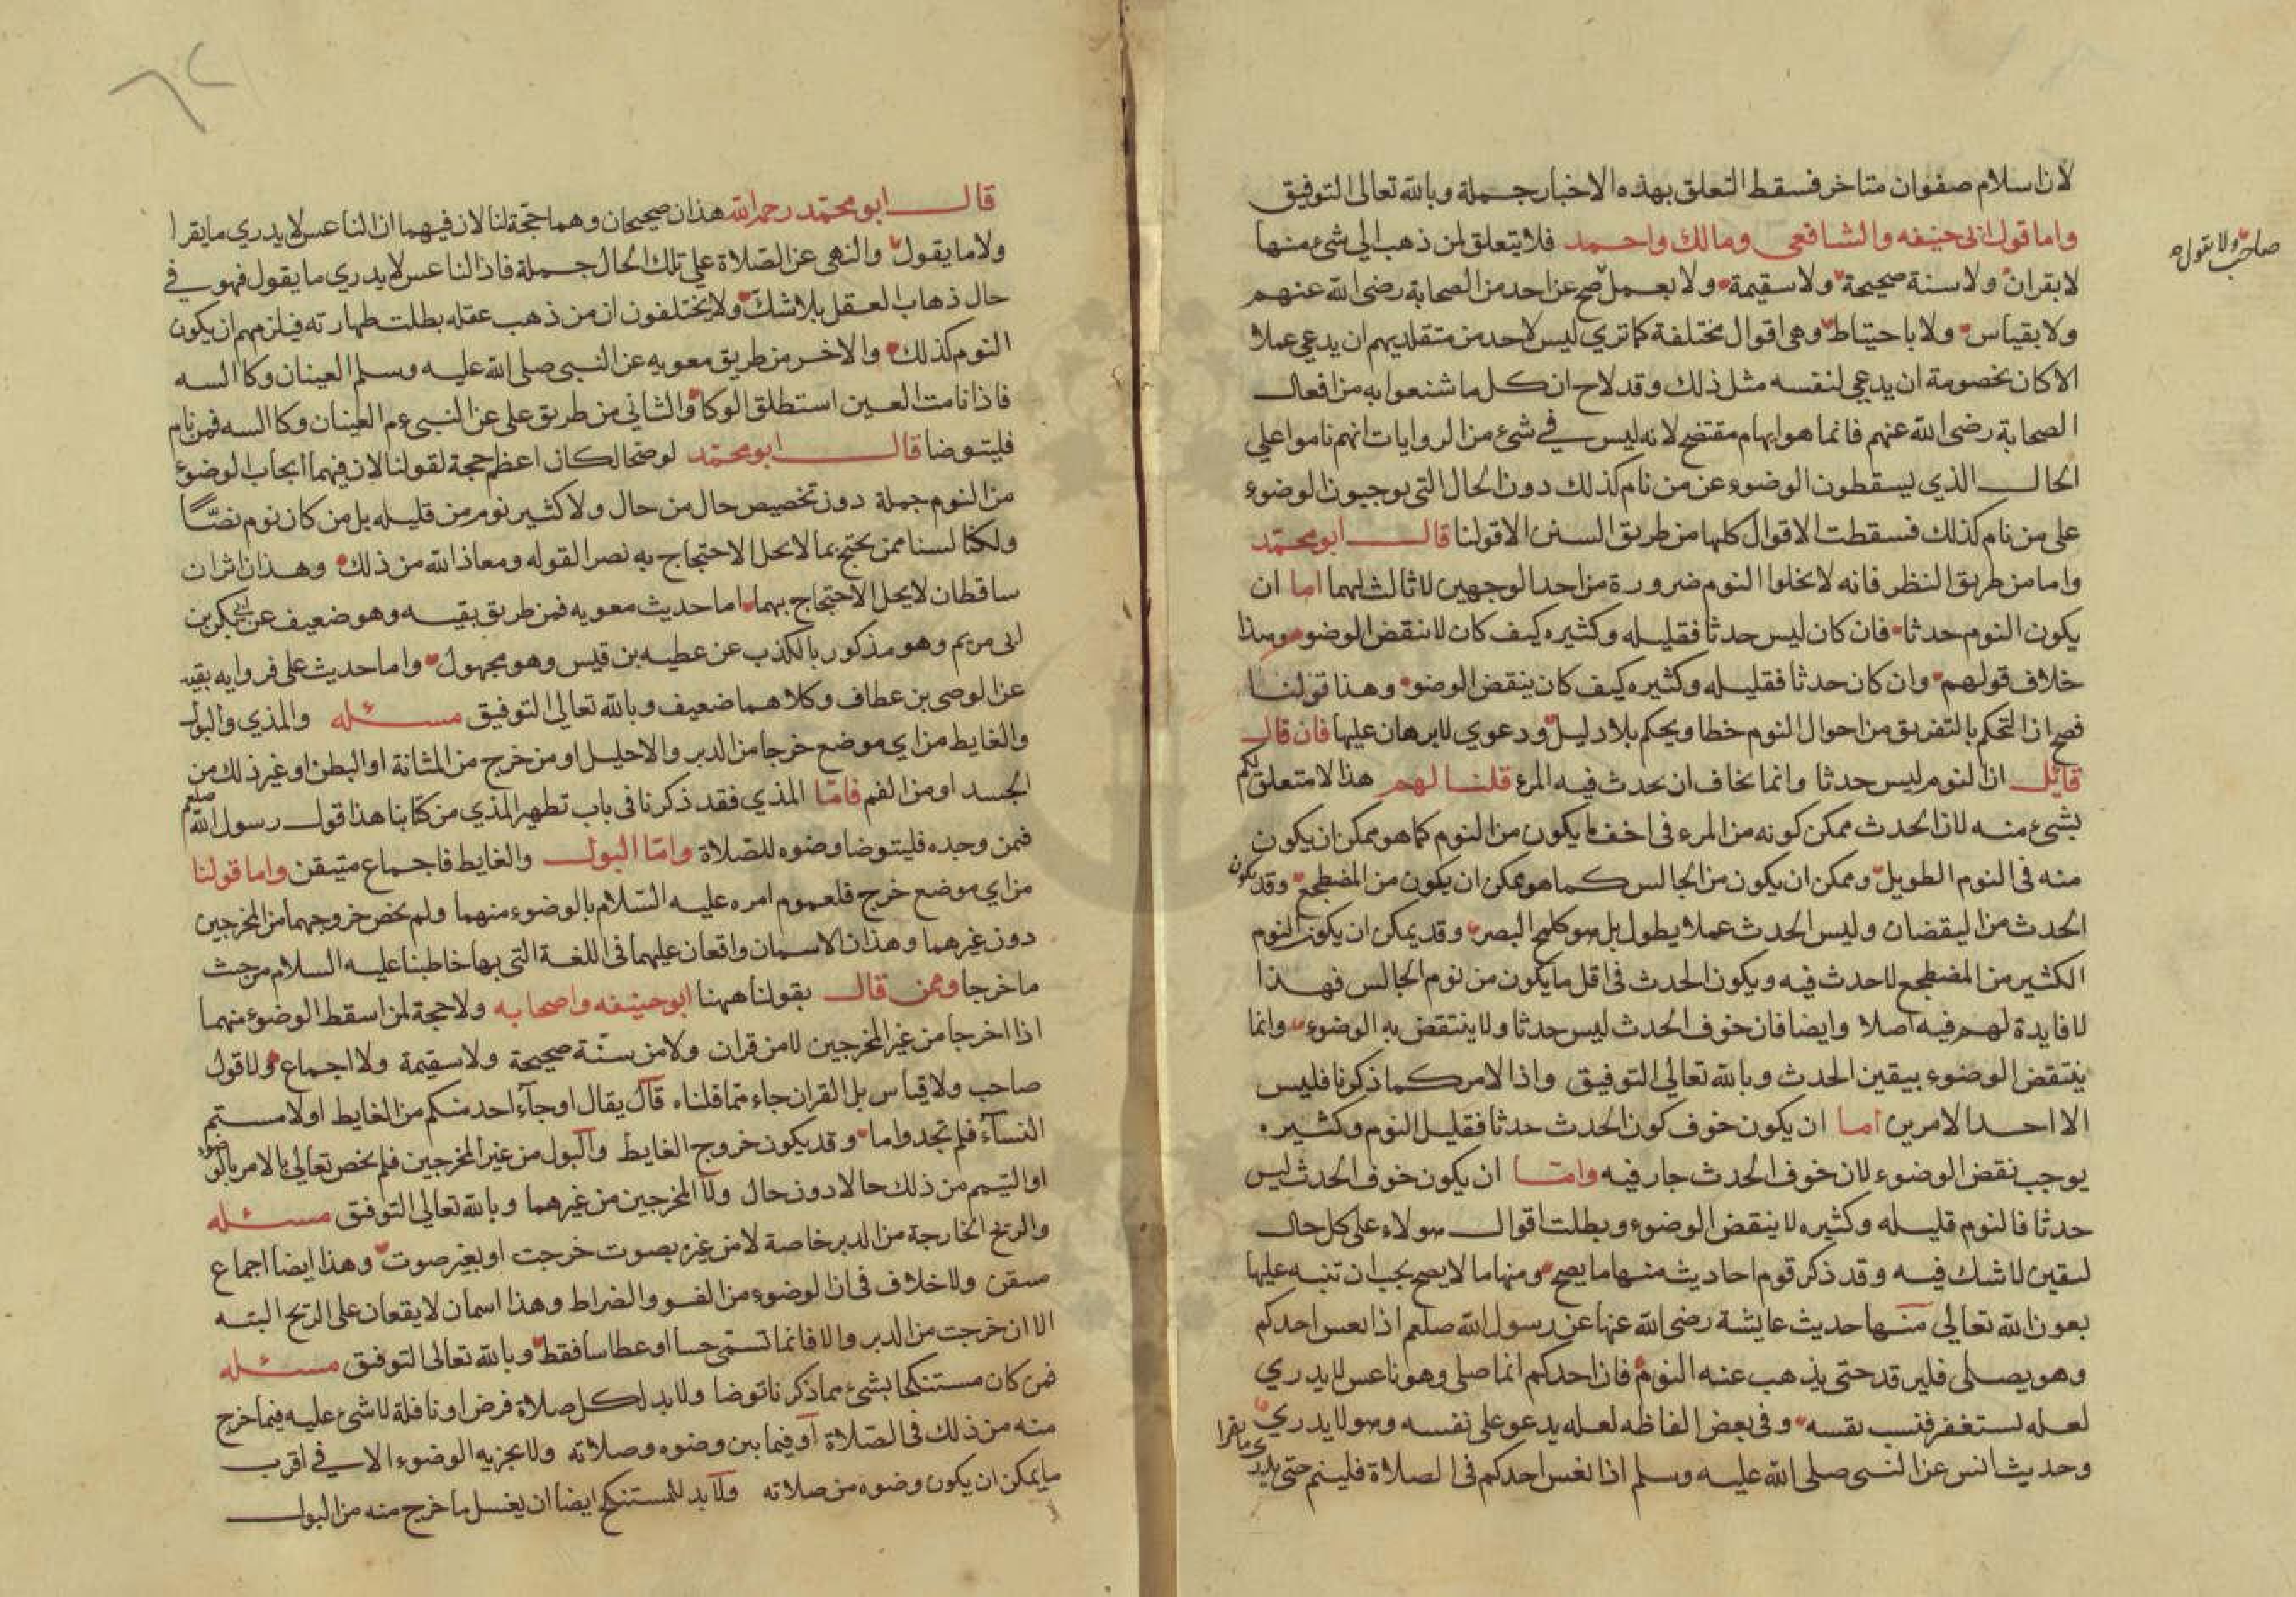 لان اسلام صفوان متاخر فسقط التعلق بهذه الاخبار جملة وبالله تعالى التوفيق
واما قول ابى حنيفه والشافعي ومالك واحمد فلا يتعلق لمن ذهب الي شىء منها
لا بقران ولا سنة صحيحة ولا سقيمة ولا بعمل صح عن احد من الصحابة رضى الله عنهم
صاحب ولا بقول
ولا بقياس ولا باحتياط وهى اقوال مختلفة كما تري ليس لاحد من مقلديهم ان يدعي عملا
الا كان لخصومة ان يدعي لنفسه مثل ذلك وقد لاح ان كل ما شنعوا به من افعال
الصحابة رضى الله عنهم فانما هو ايهام مفتضح لانه ليس في شىء من الروايات انهم ناموا علي
الحال الذي يسقطون الوضوء عن من نام كذلك دون الحال التى يوجبون الوضوء
على من نام كذلك فسقطت الاقوال كلها من طريق السنن الا قولنا قال ابو محمد
واما من طريق النظر فانه لا يخلوا النوم ضرورة من احد الوجهين لا ثالث لهما اما ان
يكون النوم حدثا فان كان ليس حدثا فقليله وكثيره كيف كان لا ينقض الوضو وهذا
خلاف قولهم وان كان حدثا فقليله وكثيره كيف كان ينقض الوضو وهذا قولنا
فصح ان التحكم بالتفريق من احوال النوم خطا ويحكم بلا دليل ودعوي لا برهان عليها فان قال
قائل ان النوم ليس حدثا وانما يخاف ان يحدث فيه المرء قلنا لهم هذا لا متعلق لكم
بشىء منه لان الحدث ممكن كونه من المرء فى اخف ما يكون من النوم كما هو ممكن ان يكون
منه فى النوم الطويل وممكن ان يكون من الجالس كما هو ممكن ان يكون من المضطجع وقد يكون
الحدث من اليقضان وليس الحدث عملا يطول بل هو كلمح البصر وقد يمكن ان يكون النوم
الكثير من المضطجع لا حدث فيه ويكون الحدث فى اقل ما يكون من نوم الجالس فهذا
لا فايدة لهم فيه اصلا وايضا فان خوف الحدث ليس حدثا ولا ينتقض به الوضوء وانما
ينتقض الوضوء بيقين الحدث وبالله تعالى التوفيق واذ الامر كما ذكرنا فليس
الا احد الامرين اما ان يكون خوف كون الحدث حدثا فقليل النوم وكثيره
يوجب نقض الوضوء لان خوف الحدث جار فيه واما ان يكون خوف الحدث ليس
حدثا فالنوم قليله وكثيره لا ينقض الوضوء وبطلت اقوال هولاء على كل حال
ليقين لا شك فيه وقد ذكر قوم احاديث منها ما يصح ومنها ما لا يصح يجب ان تنبه عليها
بعون الله تعالي منها حديث عايشة رضى الله عنها عن رسول الله صلعم اذا نعس احدكم
وهو يصلى فليرقد حتى يذهب عنه النوم فان احدكم اذا صلى وهو ناعس لا يدري
لعله يستغفر فيسب نفسه وفى بعض الفاظه لعله يدعو على نفسه وهو لا يدري
وحديث انس عن النبى صلى الله عليه وسلم اذا نعس احدكم فى الصلاة فلينم حتى يدري ما يقرا
قال ابو محمد رحمه الله هذان صحيحان وهما حجة لنا لان فيهما ان الناعس لا يدري ما يقرا
ولا ما يقول والنهى عن الصلاة علي تلك الحال جملة فاذ الناعس لا يدري ما يقول فهو في
حال ذهاب العقل بلا شك ولا يختلفون ان من ذهب عقله بطلت طهارته فيلزمهم ان يكون
النوم كذلك والاخر من طريق معويه عن النبى صلى الله عليه وسلم العينان وكا السه
فاذا نامت العين استطلق الوكا والثاني من طريق على عن النبى عم العينان وكا السه فمن نام
فليتوضا قال ابو محمد لو صحا لكان اعظم حجة لقولنا لان فيهما ايجاب الوضوء
من النوم جملة دون تخصيص حال من حال ولا كثير نوم من قليله بل من كان نوم نصا
ولكنا لسنا ممن يحتج بما لا يحل الاحتجاج به نصرا لقوله ومعاذ الله من ذلك وهذان اثران
ساقطان لا يحل الاحتجاج بهما اما حديث معويه فمن طريق بقيه وهو ضعيف عن ابى بكر بن
ابى مريم وهو مذكور بالكذب عن عطيه بن قيس وهو مجهول واما حديث على فروايه بقيه
عن الوصى بن عطاف وكلاهما ضعيف وبالله تعالى التوفيق مسئله والمذي والبول
والغايط من اي موضع خرجا من الدبر والاحليل او من خرج من المثانة او البطن او غير ذلك من
الجسد او من الفم فاما المذي فقد ذكرنا فى باب تطهير المذي من كتابنا هذا قول رسول الله صلعم
فمن وجده فليتوضا وضوه للصلاة واما البول والغايط فاجماع متيقن واما قولنا
من اي موضع خرج فلعموم امره عليه السلام بالوضوء منهما ولم يخص خروجهما من المخرجين
دون غيرهما وهذان الاسمان واقعان عليهما فى اللغة التى بها خاطبنا عليه السلام من حيث
ما خرجا وممن قال بقولنا ههنا ابو حنيفه واصحابه ولا حجة لمن اسقط الوضوء منهما
اذا اخرجا من غير المخرجين لا من قران ولا من سنة صحيحة ولا سقيمة ولا اجماع ولا قول
صاحب ولا قياس بل القران جاء بما قلناه قال يقال او جآء احد منكم من الغايط او لامستم
النسآء فلم تجدوا ما وقد يكون خروج الغايط والبول من غير المخرجين فلم يخص تعالي بالامر بالوضوء
او التيمم من ذلك حالا دون حال ولا المخرجين من غيرهما وبالله تعالى التوفيق مسئله
والريح الخارجة من الدبر خاصة لا من غيره بصوت خرجت او بغير صوت وهذا ايضا اجماع
متيقن ولا خلاف فى ان الوضوء من الفسو والضراط وهذا اسمان لا يقعان على الريح البته
الا ان خرجت من الدبر والا فانما تسمى جسا او عطاسا فقط وبالله تعالى التوفيق مسئله
فمن كان مستنكحا بشىء مما ذكرنا توضا ولا بد لكل صلاة فرض او نافلة لا شىء عليه فيما خرج
منه من ذلك فى الصلاة او فيما بين وضوه وصلاته ولا يجزيه الوضوء الا في اقرب
ما يمكن ان يكون وضوه من صلاته ولا بد للمستنكح ايضا ان يغسل ما خرج منه من البول